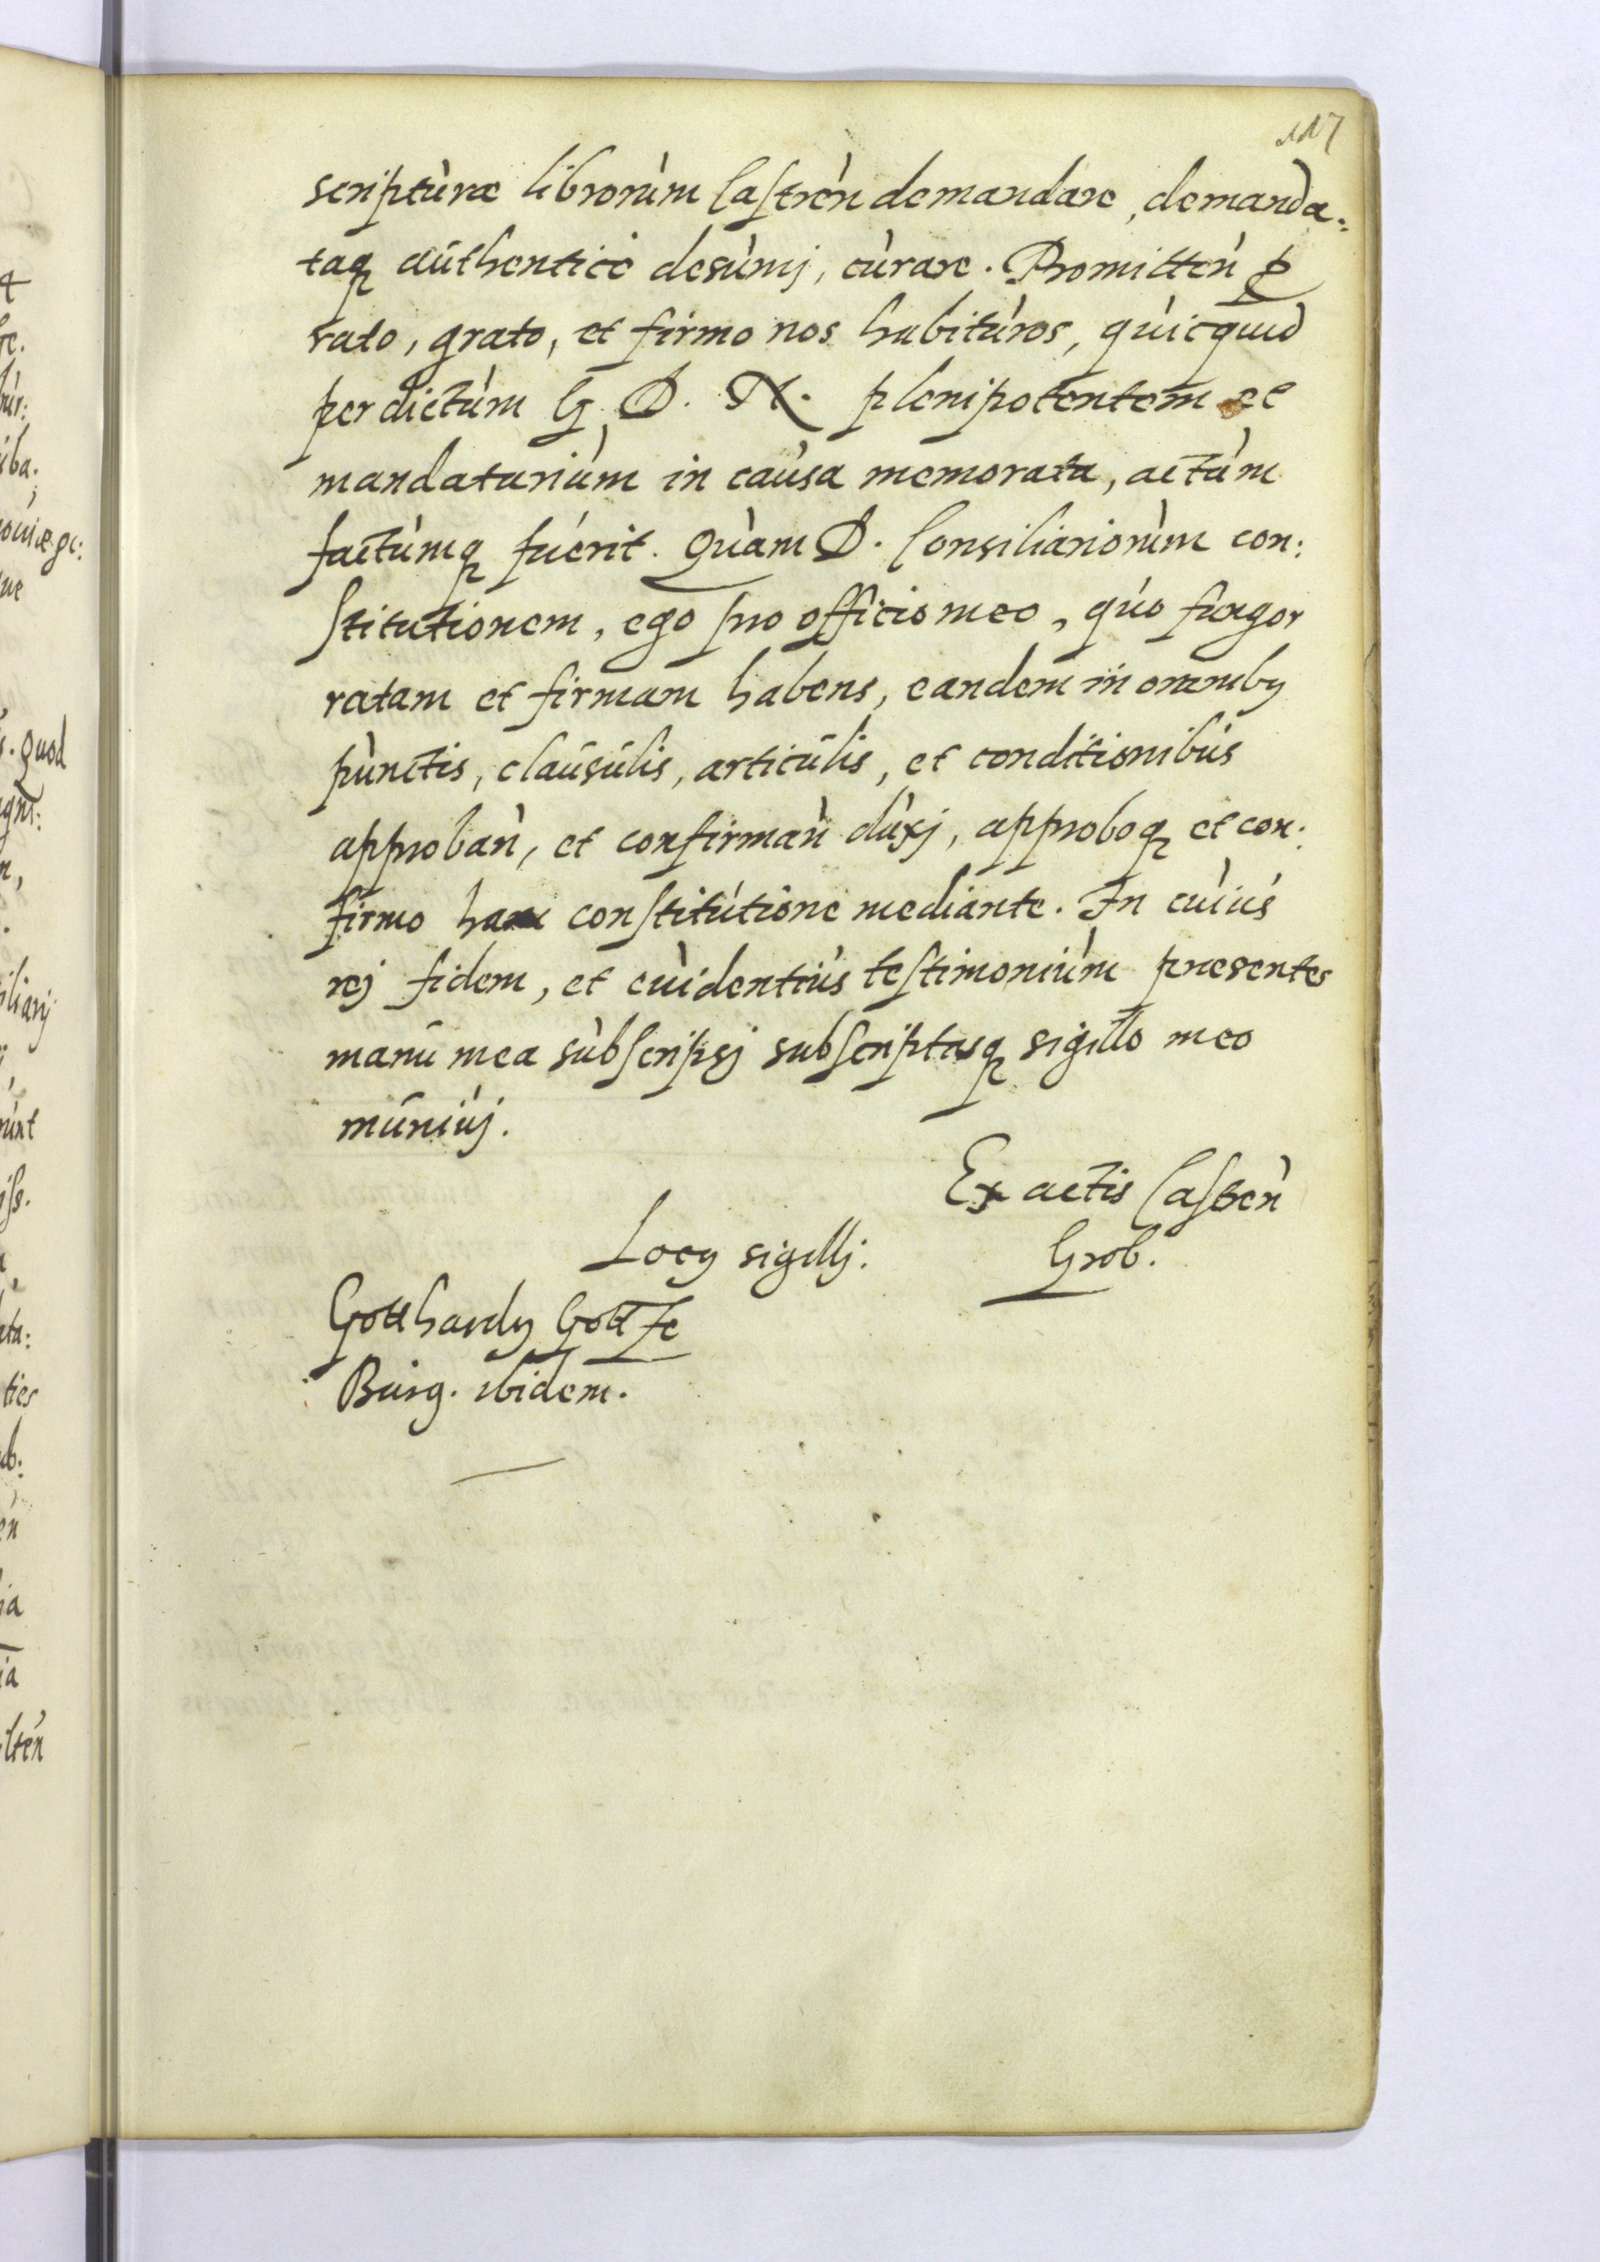 117
scripturæ librorùm Castreń demandare, demanda-
taq authenticè desùmj, cùrare. Promitteń p
rato, grato, et firmo nos habitúros, qùicquid
per dictùm G. D. N. plenipotentem et
mandatariùm in caùsa memorata, actùm
factùmq fúerit. Qùam D. Consiliariorùm con:
stitutionem, ego pro officio meo, qúo fungor
ratam et firmam habens, eandem in omnibq
pùnctis, claúsulis, articúlis, et conditionibús
approbań, et confirmań dùxj, approboq et con:
firmo hac constitútione mediante. In cùiús
rej fidem, et evidentiùs testimoniùm presentes
manú mea sùbscripsj subscriptasq sigillo meo
múniúj.
Ex actis Castreń
Grob.
Locq sigillj:
Gotthardq Gottze
Bùrg. ibidem.